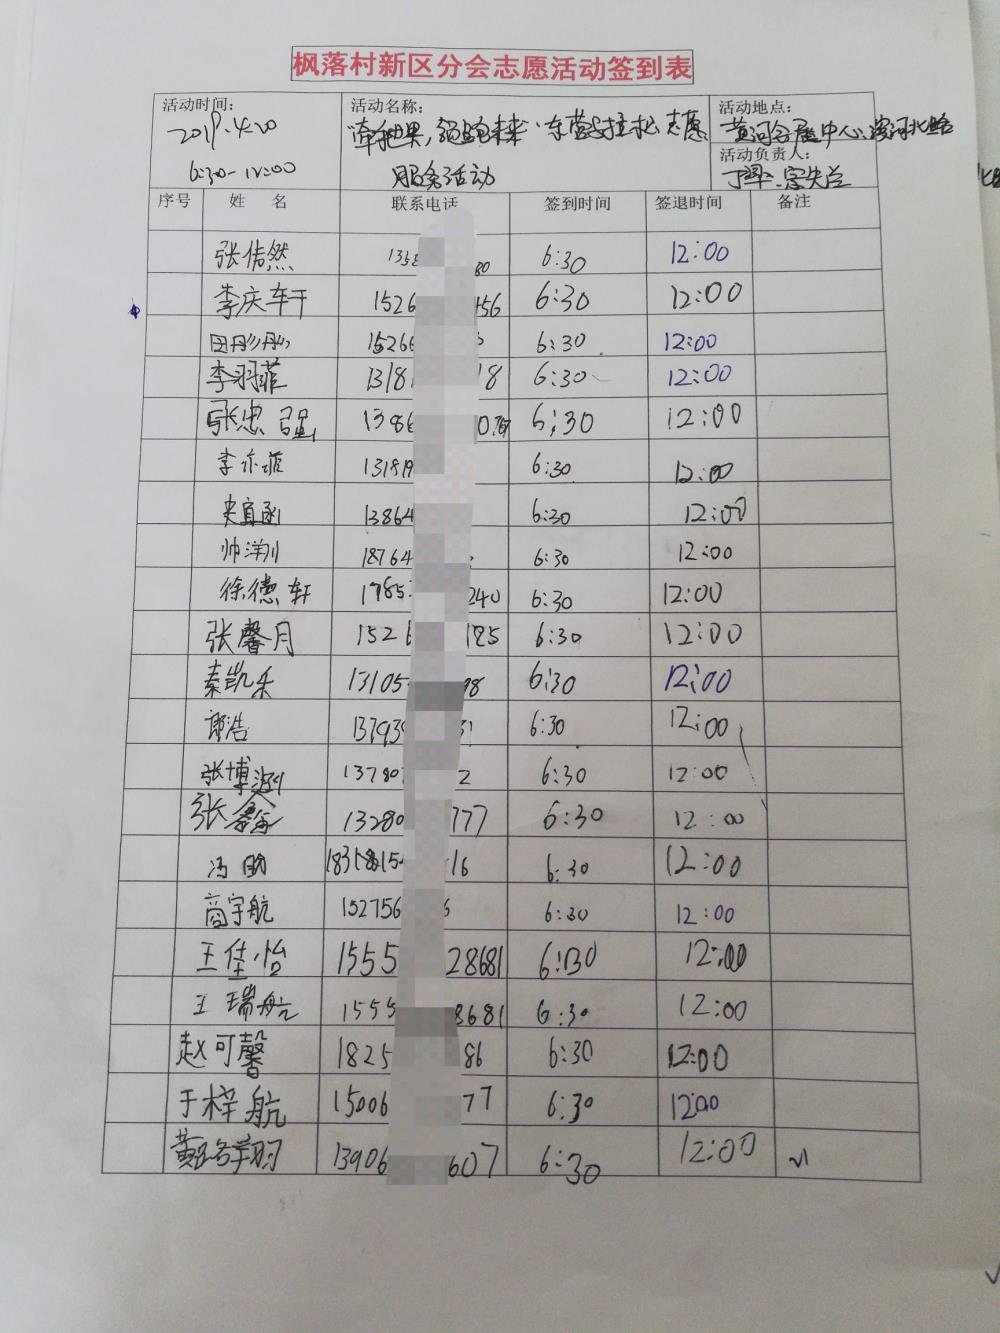 枫落村新区分会志愿活动签到表
活动时间： 2019.4.20 6:30-12:00
活动名称： 东营马拉松志愿服务活动
活动地点： 黄河会展中心
活动负责人：
序号 姓 名 联系电话 签到时间 签退时间 备注
张倩然 80 6:30 12:00
李庆轩 1526 456 6:30 12:00
田彤彤 15266 6:30 12:00
李羽菲 1318 18 6:30 12:00
张忠强 1386 6:30 12:00
李亦菲 131819 6:30 12:00
13864 6:30 12:00
18764 6:30 12:00
徐德轩 1785 240 6:30 12:00
张馨月 1526 6:30 12:00
秦凯乐 13105 98 6:30 12:00
郎浩 13793 6:30 12:00
张博渊 13780 2 6:30 12:00
张鑫 13280 777 6:30 12:00
冯 16 6:30 12:00
商宇航 152756 6 6:30 12:00
王佳怡 1555 28681 6:30 12:00
王瑞航 1555 8681 6:30 12:00
赵可馨 1825 86 6:30 12:00
于梓航 15006 77 6:30 12:00
13906 607 6:30 12:00